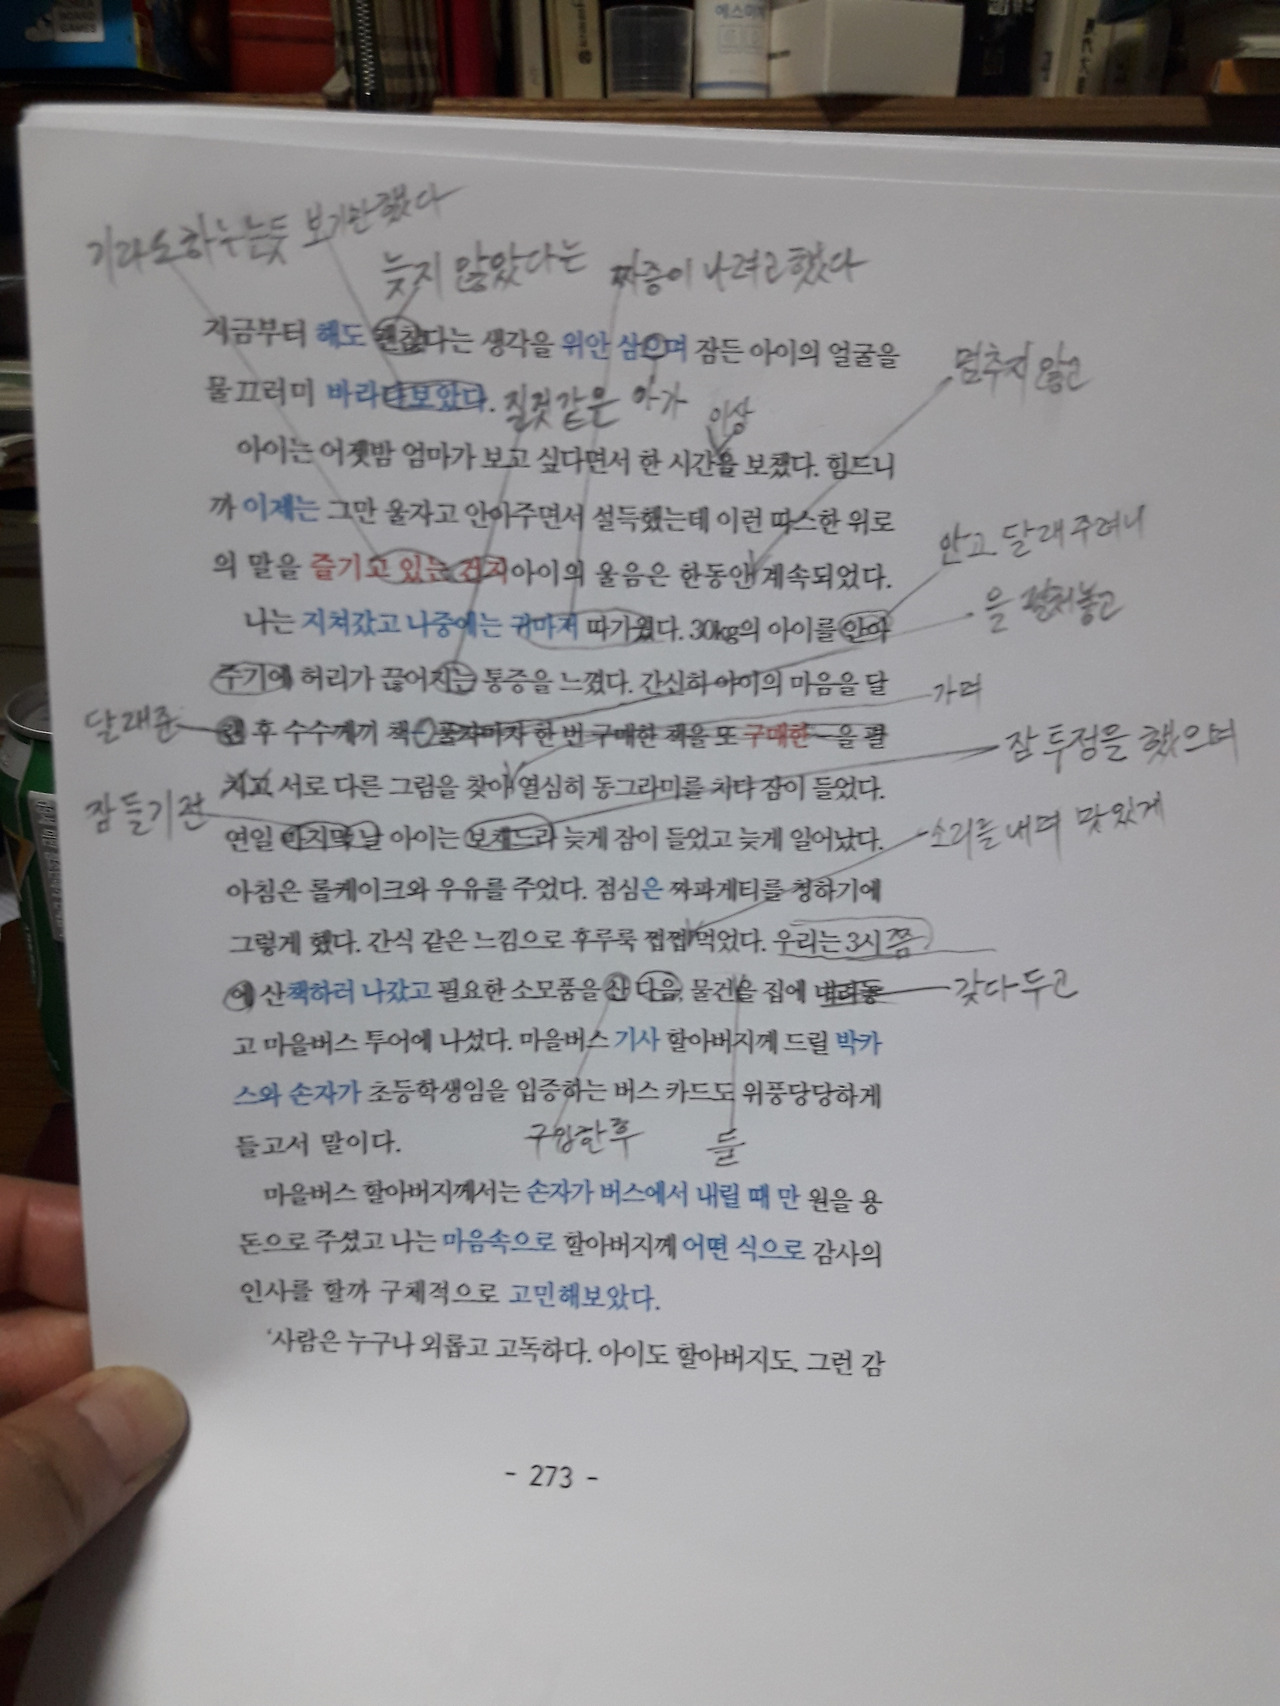 기라도 하는듯 보기만 했다
늦지 않았다는 짜증이 나려고 했다
지금부터 해도 괜찮다는 생각을 위안 삼으며 잠든 아이의 얼굴을
멈추지 않고
물끄러미 바라다보았다. 질것같은 아가
이상
아이는 어젯밤 엄마가 보고 싶다면서 한 시간을 보챘다. 힘드니
까 이제는 그만 울자고 안아주면서 설득했는데 이런 따스한 위로
안고 달래주려니
의 말을 즐기고 있는 건지 아이의 울음은 한동안 계속되었다.
을 펼쳐놓고
나는 지쳐갔고 나중에는 귀마저 따가웠다. 30kg의 아이를 안아
주기에 허리가 끊어지는 통증을 느꼈다. 간신히 아이의 마음을 달
가며
달래준
랜 후 수수께끼 책 풀자마자 한 번 구매한 책을 또 구매한 을 펼
잠투정을 했으며
치고 서로 다른 그림을 찾아 열심히 동그라미를 치다 잠이 들었다.
잠들기전
연일 마지막 날 아이는 보채드라 늦게 잠이 들었고 늦게 일어났다.
소리를 내며 맛있게
아침은 롤케이크와 우유를 주었다. 점심은 짜파게티를 청하기에
그렇게 했다. 간식 같은 느낌으로 후루룩 쩝쩝 먹었다. 우리는 3시 쯤
에 산책하러 나갔고 필요한 소모품을 산 다음, 물건을 집에 내려놓
갖다 두고
고 마을버스 투어에 나섰다. 마을버스 기사 할아버지께 드릴 박카
스와 손자가 초등학생임을 입증하는 버스 카드도 위풍당당하게
들고서 말이다.
구입한 후 들
마을버스 할아버지께서는 손자가 버스에서 내릴 때 만 원을 용
돈으로 주셨고 나는 마음속으로 할아버지께 어떤 식으로 감사의
인사를 할까 구체적으로 고민해보았다.
'사람은 누구나 외롭고 고독하다. 아이도 할아버지도. 그런 감
- 273 -